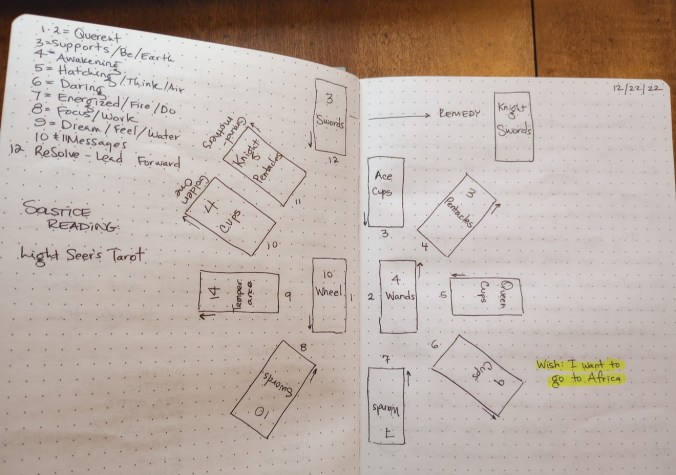 1·2 = Querent
3 = Supports/Be/Earth
4 = Awakening
5 = Hatching/Think/Air
6 = Daring
7 = Energized/Fire/Do
8 = Focus/Work
9 = Dream/Feel/Water
10 & 11 Messages
12 Resolve - Lead Forward
SOLSTICE
READING:
Light Seer's Tarot
3
Swords
12
Knight
Pentacles
11
Golden
One
4
Cups
10
14
Temper
ance
9
10
Wheel
1
8
10
Swords
12/22/22
REMEDY
Knight
Swords
Ace
Cups
3
3
Pentacles
4
2
4
Wands
5
Queen
Cups
6
9
Cups
7
7
Wands
Wish: I want to
go to Africa